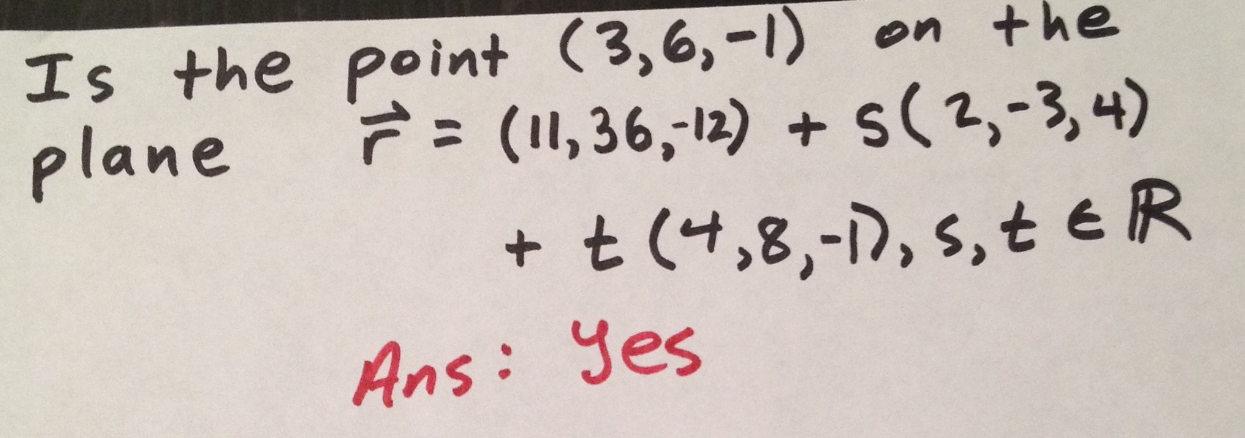 Is the point (3,6,-1) on the
plane r⃗ = (11,36,-12) + s(2,-3,4)
+ t(4,8,-1), s,t ∈ ℝ
Ans: Yes